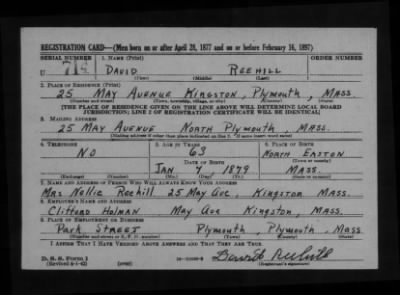 REGISTRATION CARD—(Men born on or after April 28, 1877 and on or before February 16, 1897)
SERIAL NUMBER 1. NAME (Print) ORDER NUMBER
U DAVID REEHILL
(First) (Middle) (Last)
2. PLACE OF RESIDENCE (Print)
25 MAY AVENUE KINGSTON, PLYMOUTH, MASS.
(Number and street) (Town, township, village, or city) (County) (State)
[THE PLACE OF RESIDENCE GIVEN ON THE LINE ABOVE WILL DETERMINE LOCAL BOARD
JURISDICTION; LINE 2 OF REGISTRATION CERTIFICATE WILL BE IDENTICAL]
3. MAILING ADDRESS
25 MAY AVENUE NORTH PLYMOUTH, MASS.
[Mailing address if other than place indicated on line 2. If same insert word same]
4. TELEPHONE 5. AGE IN YEARS 6. PLACE OF BIRTH
NO 63 NORTH EASTON
DATE OF BIRTH (Town or county)
JAN 7 1879 MASS.
(Exchange) (Number) (Mo.) (Day) (Yr.) (State or country)
7. NAME AND ADDRESS OF PERSON WHO WILL ALWAYS KNOW YOUR ADDRESS
MRS NELLIE REEHILL 25 MAY AVE, KINGSTON MASS.
8. EMPLOYER'S NAME AND ADDRESS
CLIFFORD HOLMAN MAY AVE KINGSTON, MASS.
9. PLACE OF EMPLOYMENT OR BUSINESS
PARK STREET PLYMOUTH, PLYMOUTH, MASS.
(Number and street or R. F. D. number) (Town) (County) (State)
I AFFIRM THAT I HAVE VERIFIED ABOVE ANSWERS AND THAT THEY ARE TRUE.
D. S. S. Form 1
(Revised 4-1-42) (over) David Reehill
(Registrant's signature)